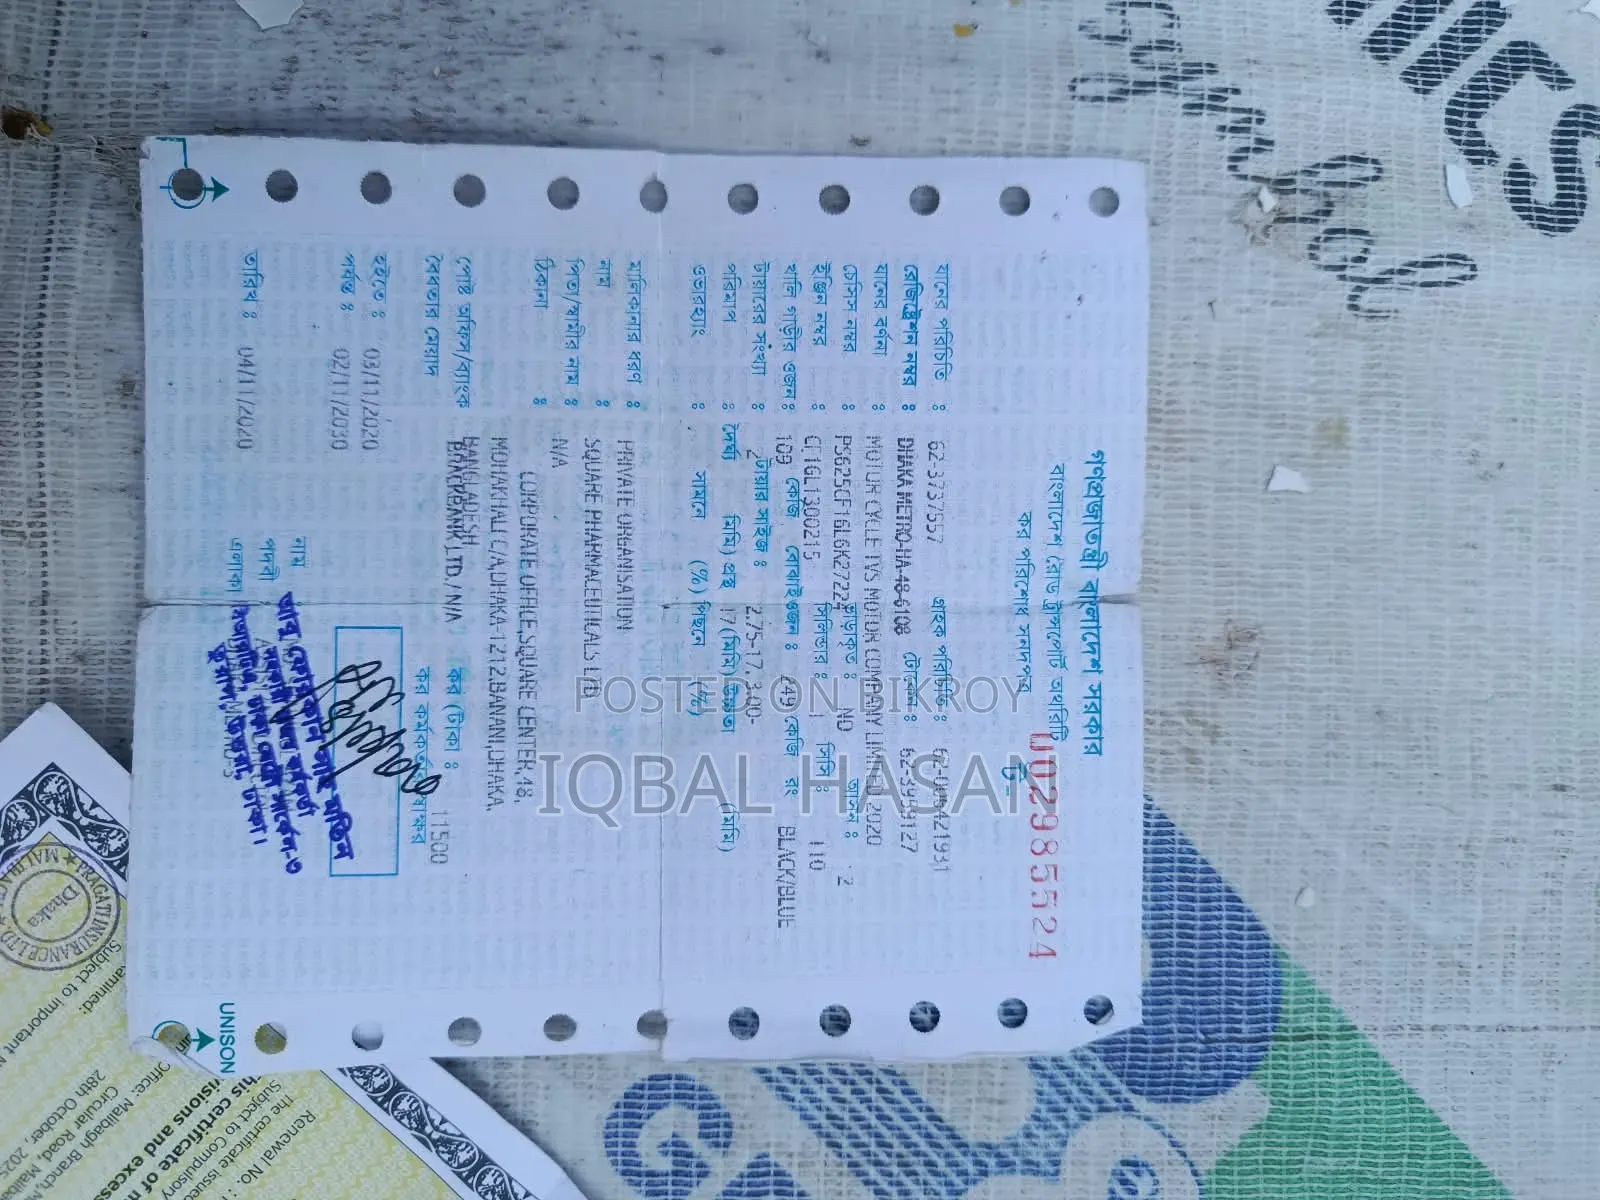 গণপ্রজাতন্ত্রী বাংলাদেশ সরকার
বাংলাদেশ রোড ট্রান্সপোর্ট অথরিটি
কর পরিশোধ সনদপত্র
ট-
U02985524
যানের পরিচিতি : 62-3737557 গ্রাহক পরিচিতি :
রেজিস্ট্রেশন নম্বর : DHAKA METRO-HA-48-6108 টোকেন : 62-3959127
যানের বর্ণনা : MOTOR CYCLE TVS MOTOR COMPANY LIMITED 2020
চেসিস নম্বর : PS625CF16L6K27224 ভাড়াকৃত : NO আসন : 2
ইঞ্জিন নম্বর : CF1GL1300215 সিলিন্ডার : 1 সিসি : 110
খালি গাড়ীর ওজন : 109 কেজি বোঝাইওজন : 249 কেজি রং BLACK/BLUE
টায়ারের সংখ্যা : 2 টায়ার সাইজ : 2.75-17, 3.00-17
পরিমাপ : দৈর্ঘ্য (মিমি) প্রস্থ (মিমি) উচ্চতা (মিমি)
ওভারহ্যাং : সামনে (%) পিছনে (%)
মালিকানার ধরণ : PRIVATE ORGANISATION
নাম : SQUARE PHARMACEUTICALS LTD
পিতা/স্বামীর নাম : N/A
ঠিকানা : CORPORATE OFFICE,SQUARE CENTER,48,
MOHAKHALI C/A,DHAKA-1212,BANANI,DHAKA,
BANGLADESH
পোষ্ট অফিস/ব্যাংক BRACBANK LTD./ N/A
বৈধতার মেয়াদ কর (টাকা : 11500
হইতে : 03/11/2020
পর্যন্ত : 02/11/2030
কর কর্মকর্তার স্বাক্ষর
তারিখ : 04/11/2020
নাম
পদবী
এলাকা
UNISON
PRAGATI INSURANCE LTD.
Dhaka
amined:
Subject to important
Renewal No. :
The certificate issued
Subject to Compulsory
his certificate of
visions and excess
Office: Malibagh Branch,
Circular Road, Malibag
28th October, 202
POSTED ON BIKROY
IQBAL HASAN